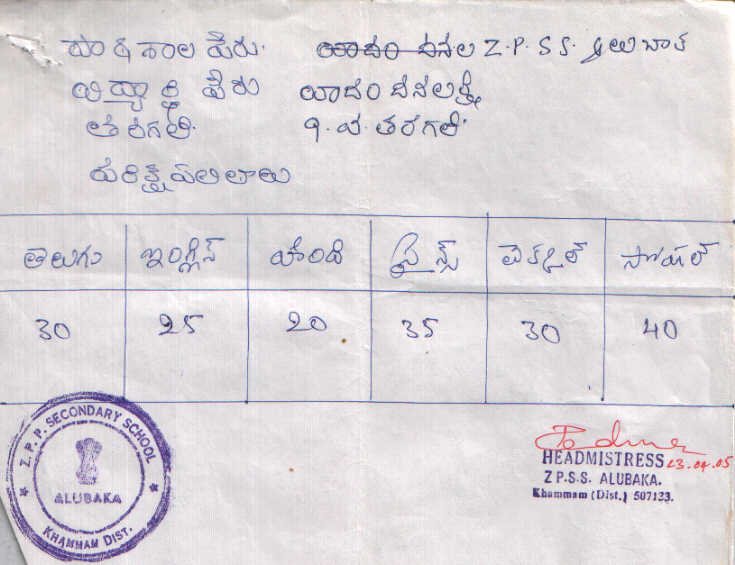 పాఠశాల పేరు. Z.P.S.S. ఆలుబాక
విద్యార్థి పేరు యాదం ధనలక్ష్మి
తరగతి. 9. వ. తరగతి.
పరీక్ష ఫలితాలు
తెలుగు ఇంగ్లీస్ హింది సైన్స్ లెక్కల్ సోషల్
30 25 20 35 30 40
Z. P. P. SECONDARY SCHOOL
ALUBAKA
KHAMMAM DIST.
23.04.05
HEADMISTRESS
Z P.S.S. ALUBAKA.
Khammam (Dist.) 507133.